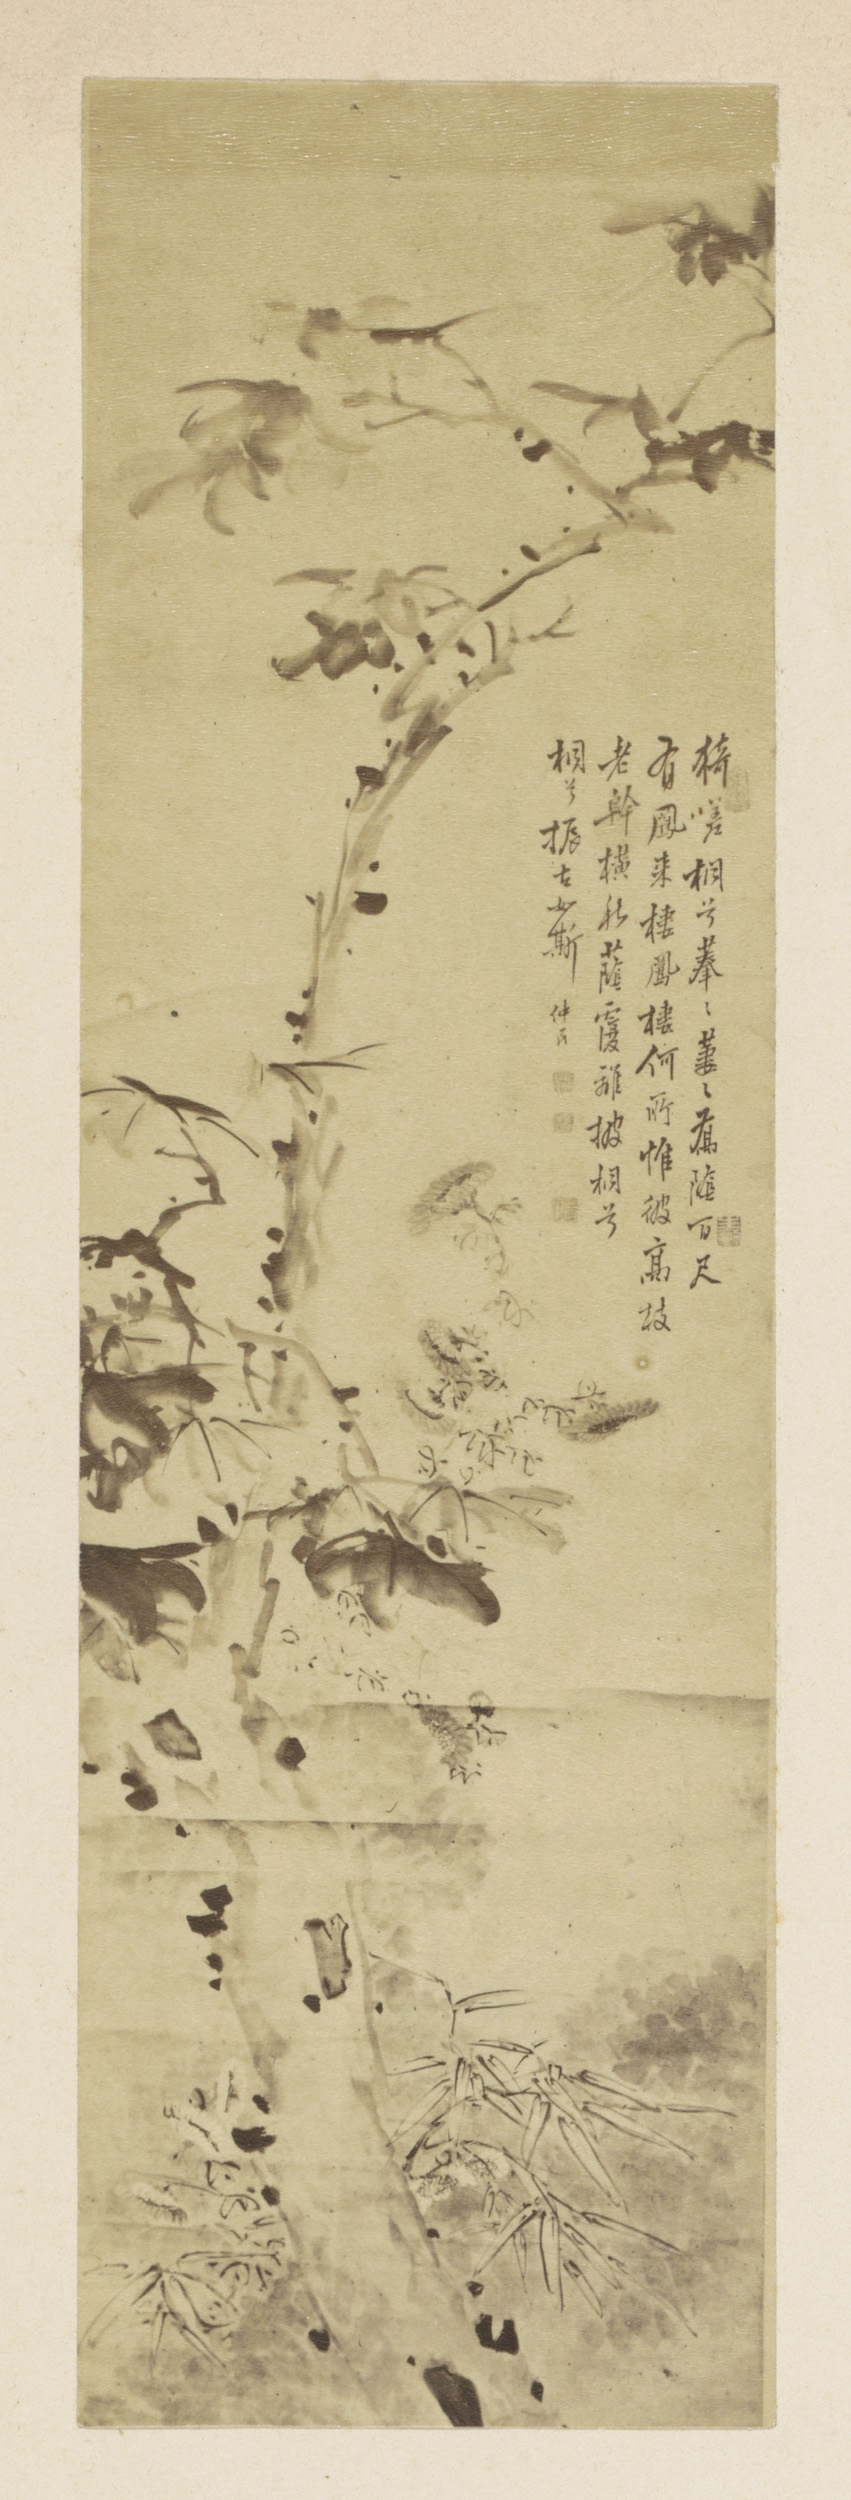 猗嗟桐兮菶〻萋〻舊蔭百尺
有鳳来棲鳳棲何所惟彼高枝
老幹横秋蔭覆離披桐兮
桐兮振古如斯
仲民